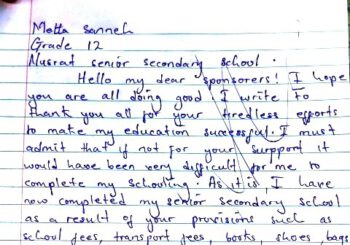 Motta Sanneh
Grade 12
Nusrat senior secondary school.
Hello my dear sponsorers! I hope
you are all doing good. I write to
thank you all for your tiredless efforts
to make my education successful. I must
admit that if not for your support it
would have been very difficult for me to
complete my schooling. As it is, I have
now completed my senior secondary school
as a result of your provisions such as
school fees, transport fees, books, shoes, bags